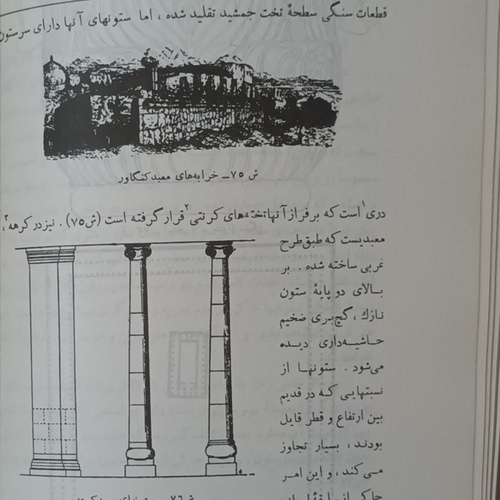 قطعات سنگی سطحهٔ تخت جمشید تقلید شده ، اما ستونهای آنها دارای سرستون
ش ۷۵ــ خرابه‌های معبدکنگاور
دری۱ است که برفراز آنها تخته‌های کرنتی۲ قرار گرفته است (ش۷۵). نیز در کرهه۳،
معبدیست که طبق طرح
غربی ساخته شده . بر
بالای دو پایهٔ ستون
نازك ، گچ‌بری ضخیم
حاشیه‌داری دیده
می‌شود . ستونها از
نسبتهایی که در قدیم
بین ارتفاع و قطر قایل
بودند ، بسیار تجاوز
می‌کند ، و این امر
ش ۷۶ــ